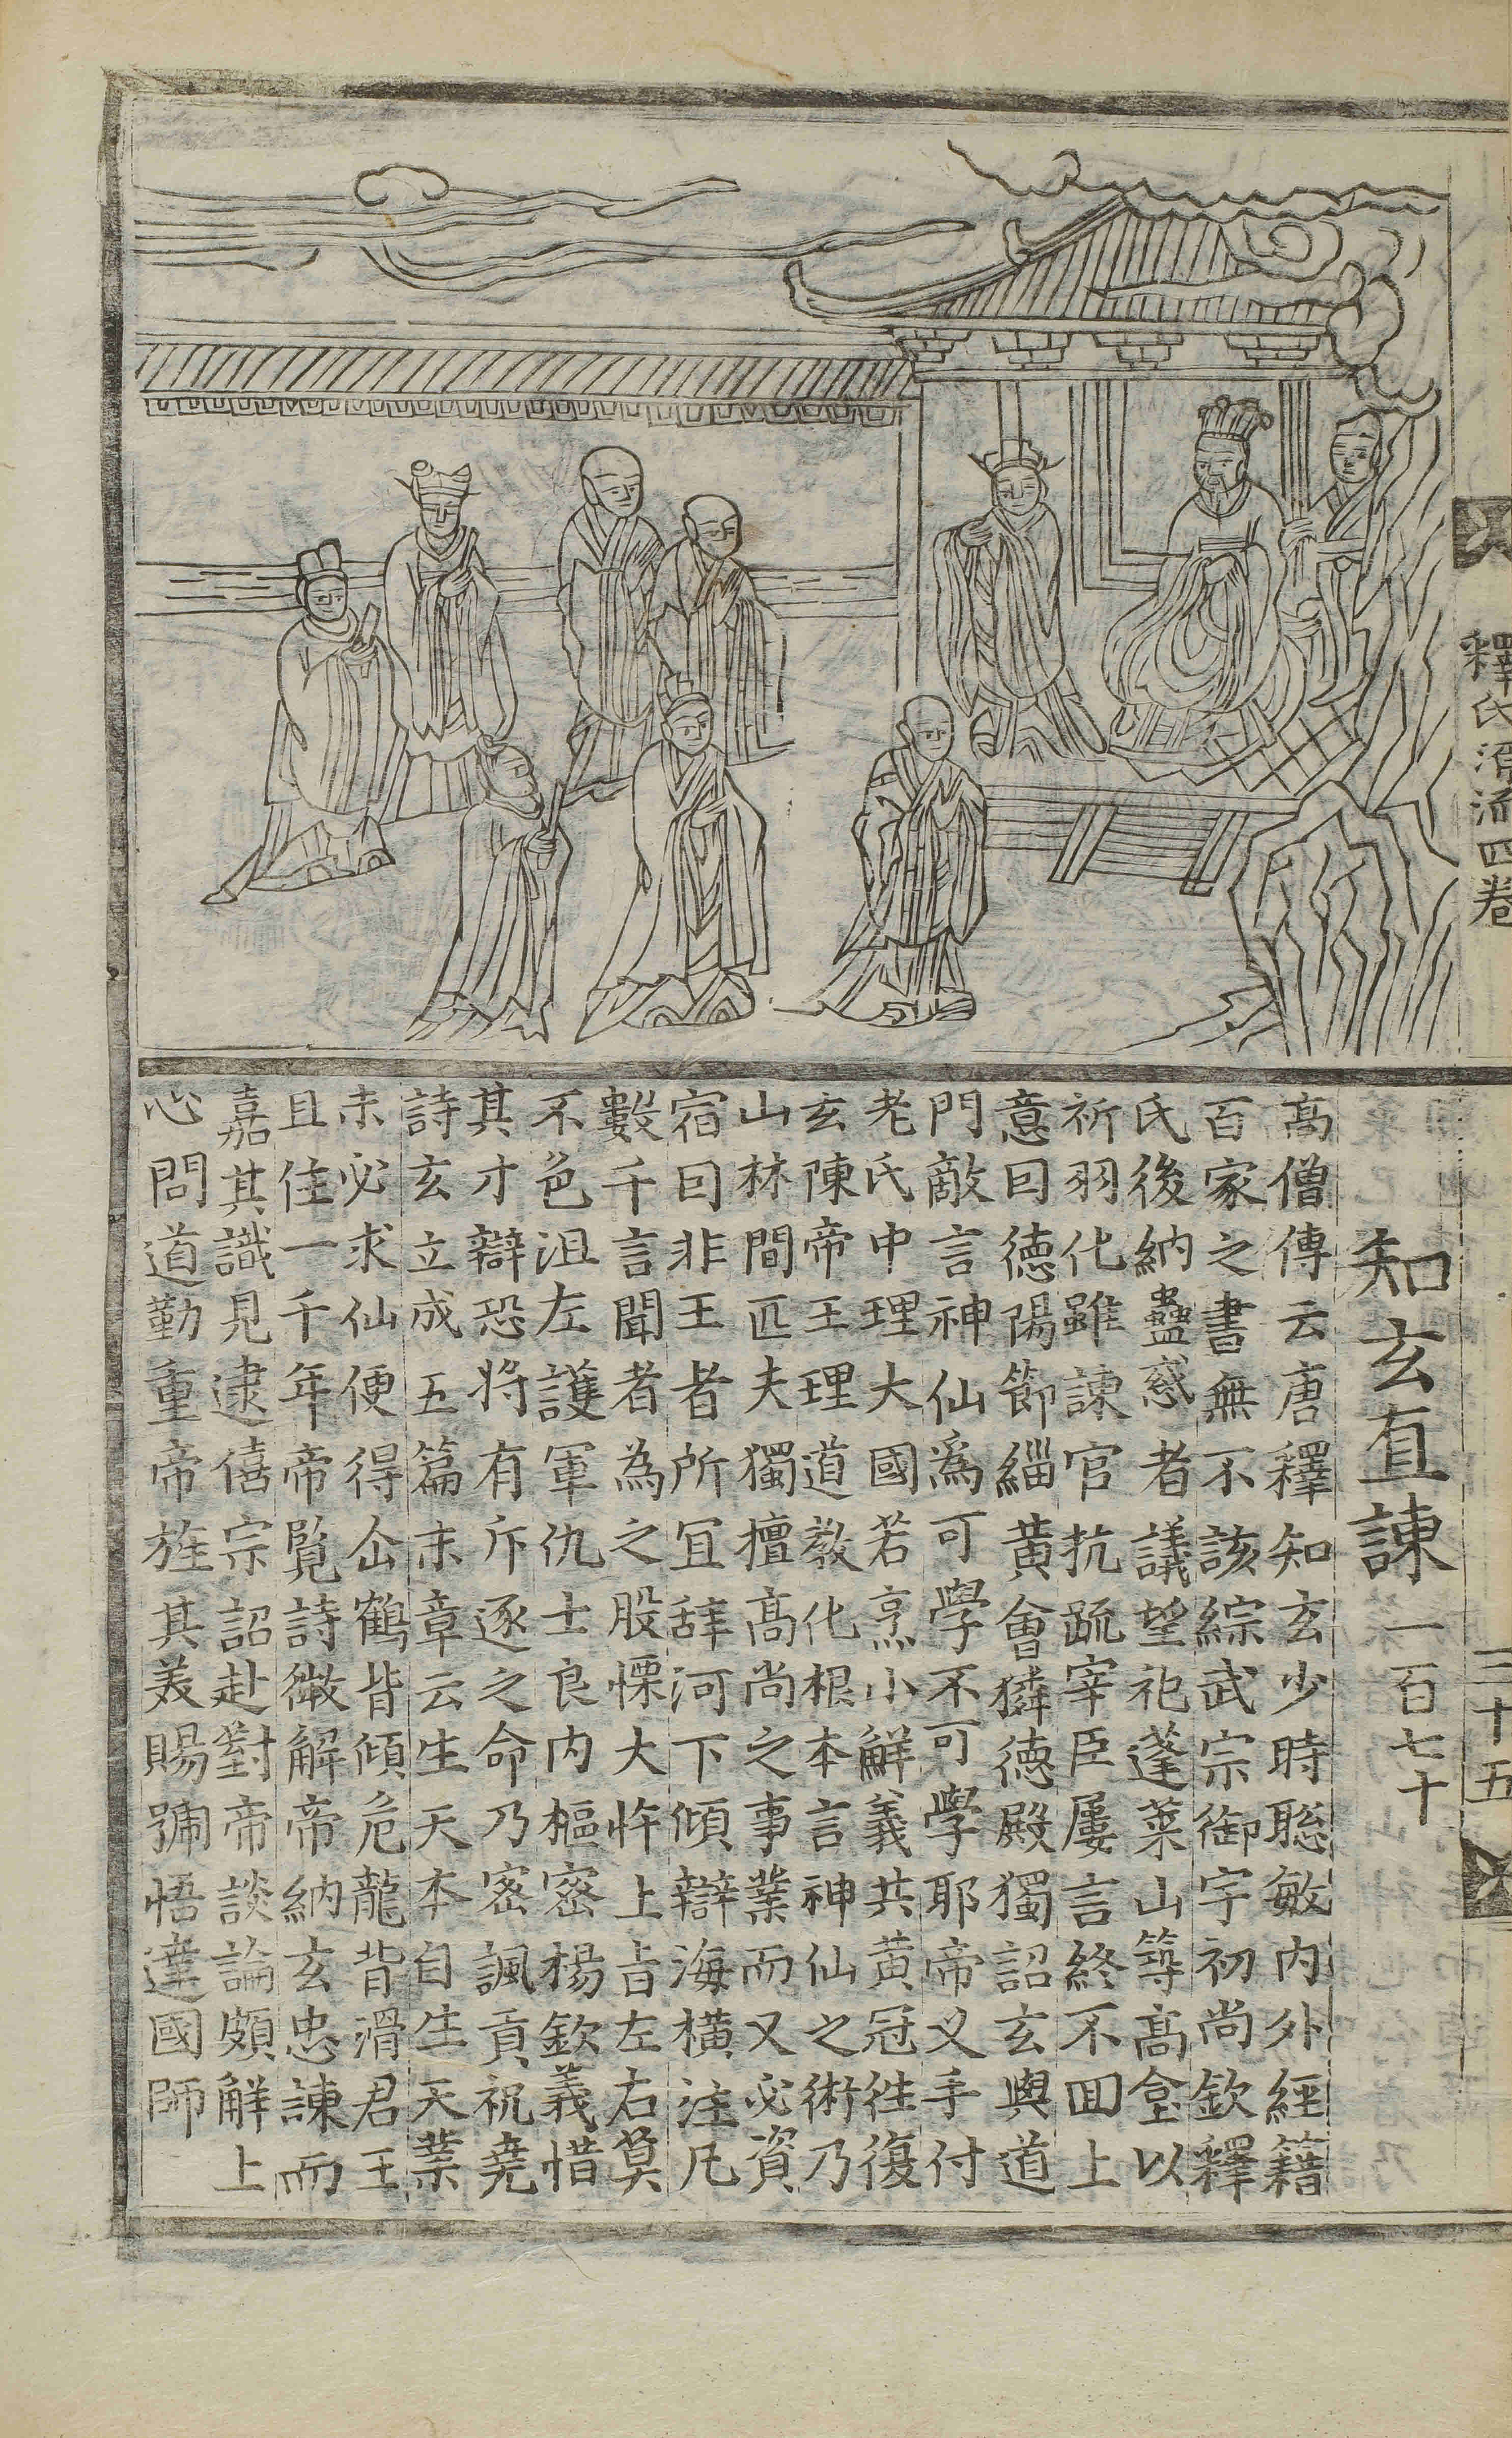 釋氏源流四卷
三十五
知玄直諫 一百七十
高僧傳云唐釋知玄少時聡敏內外經籍
百家之書無不該綜武宗御宇初尚欽釋
氏後納蠱惑者議望祀蓬萊山築高臺以
祈羽化雖諫官抗䟽宰臣屢言終不囬上
意曰德陽節緇黃會麟德殿獨詔玄與道
門敵言神仙爲可學不可學耶帝乂手付
老氏中理大國若烹小鮮義共黃冠徃復
玄陳帝王理道教化根本言神仙之術乃
山林間匹夫獨擅高尚之事業而又必資
宿曰非王者所冝辭河下傾辯海橫注凡
數千言聞者為之股慄大忤上㫖左右莫
不色沮左護軍仇士良內樞宻楊欽義惜
其才辯恐將有斥逐之命乃宻諷貢祝堯
詩玄立成五篇末章云生天本自生天業
未必求仙便得仙鶴背傾危龍背滑君王
且住一千年帝覽詩微解帝納玄忠諫而
嘉其識見逮僖宗詔赴對帝談論頗解上
心問道勤重帝旌其美賜號悟達國師